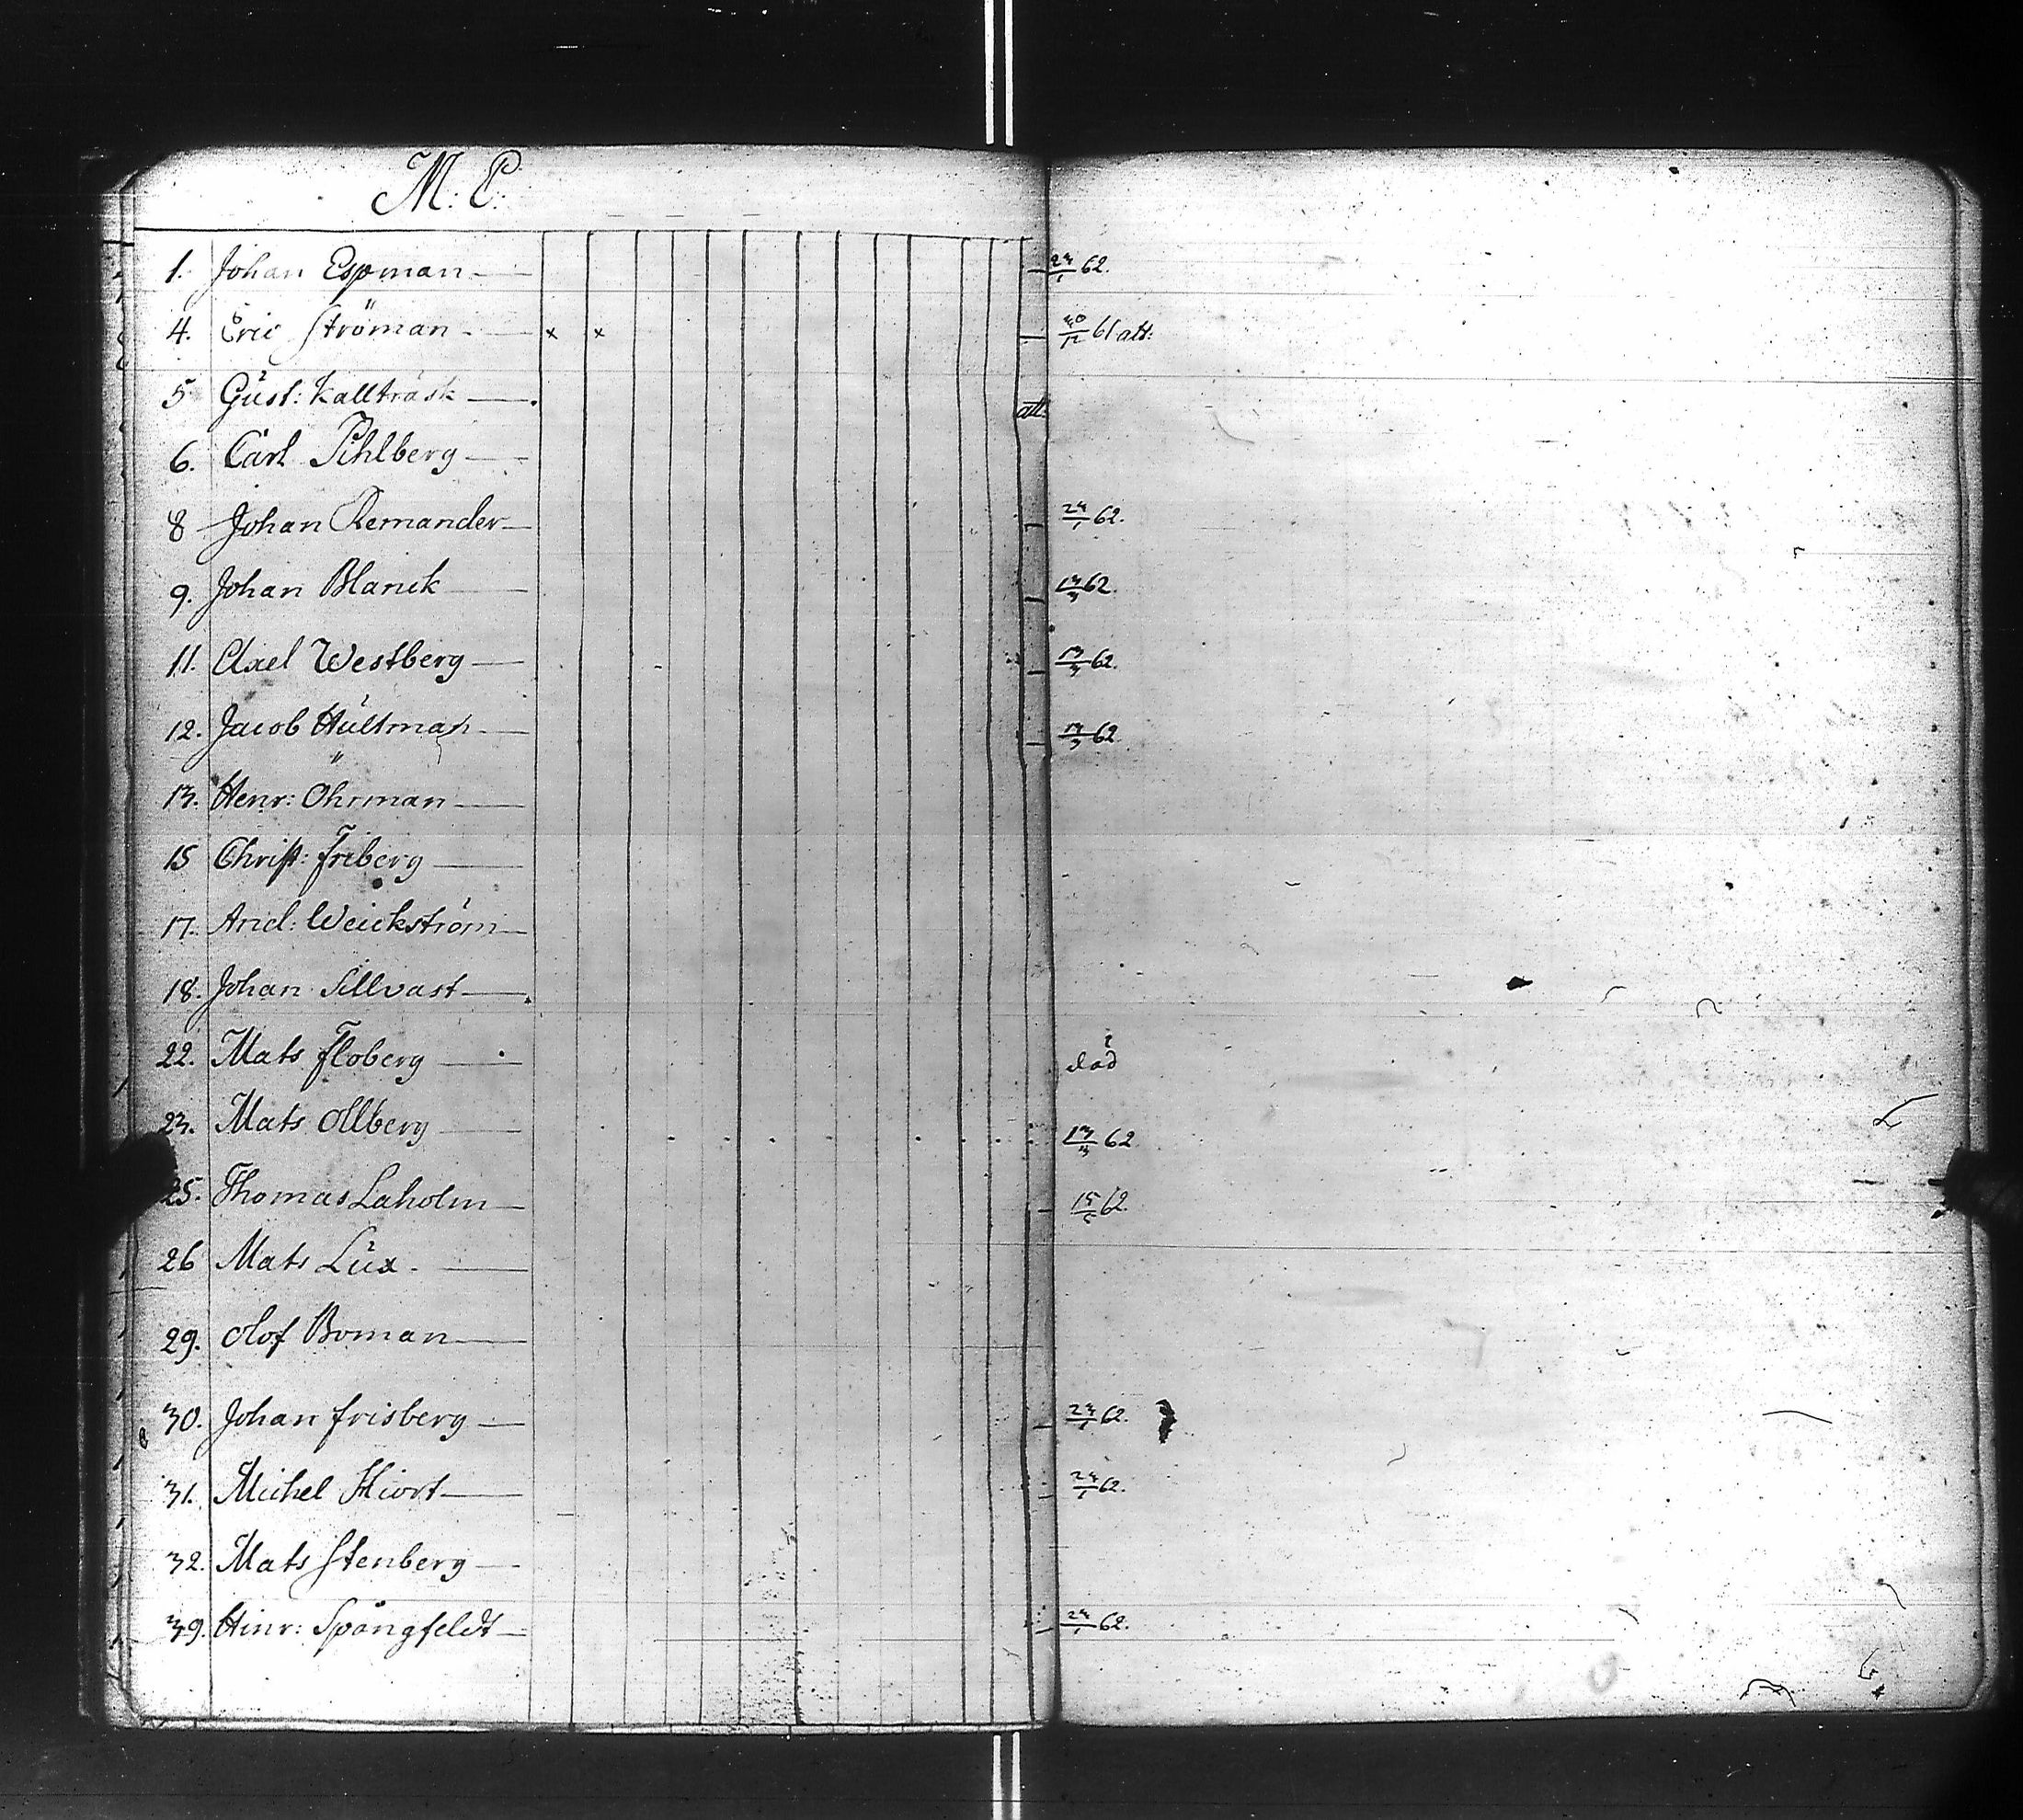 M: C:
1. Johan Espman — 24/1 62.
4. Eric Ströman — × × — 30/12 61 att:
5 Gust: Kallträsk — att.
6. Carl Pihlberg —
8 Johan Remander — 24/1 62.
9. Johan Blanck — 13/3 62.
11. Axel Westberg — 13/3 62.
12. Jacob Hultman — 13/3 62
13. Henr: Öhrman —
15 Christ: Friberg —
17. And: Weickström —
18. Johan Sillvast —
22. Mats Floberg — död
23. Mats Ollberg — 13/3 62
25. Thomas Laholm — 62.
26 Mats Lux. —
29. Olof Boman —
30. Johan Frisberg — 24/1 62.
31. Michel Hiort — 24/1 62.
32. Mats Stenberg —
39. Hinr: Spångfeldt — 24/1 62.